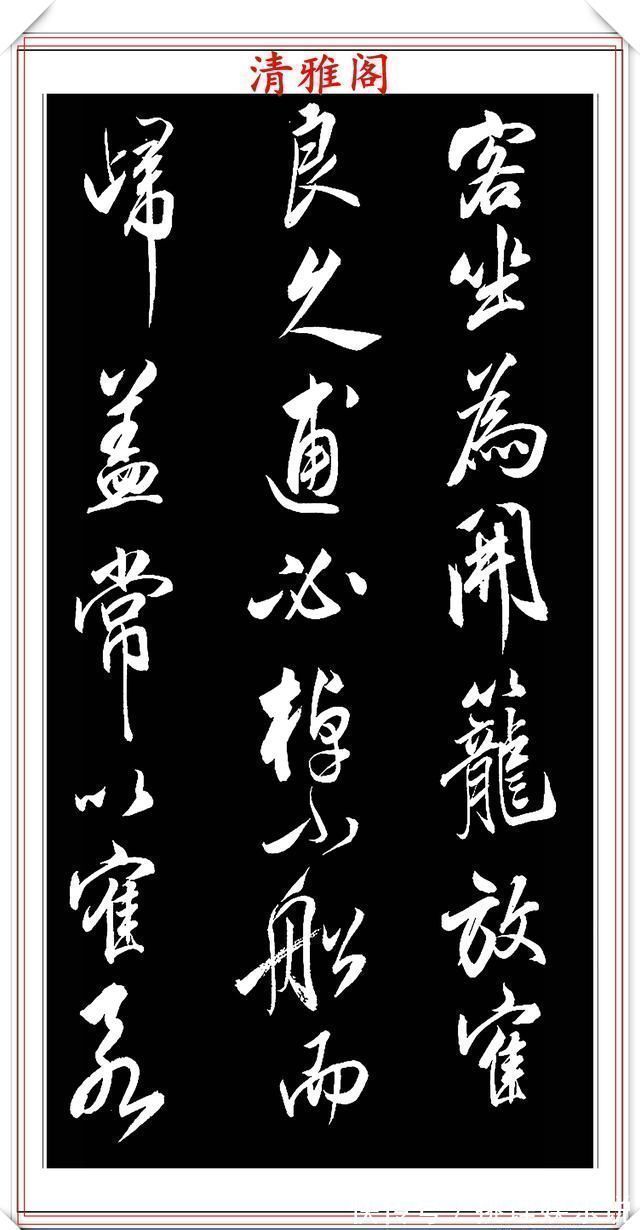 清雅阁
客坐為開籠放寉
良久逋必棹小船而
歸蓋常以寉爲